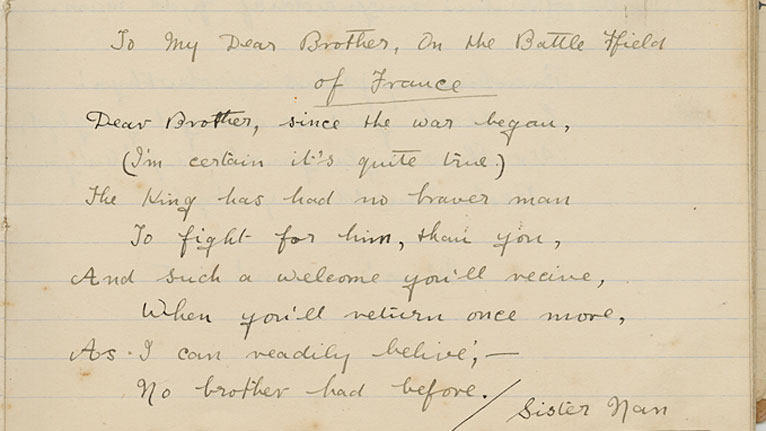 To My Dear Brother, On the Battle Ffield
of France
Dear Brother, since the war began,
(I'm certain it's quite true.)
The King has had no braver man
To fight for him, than you,
And such a welcome you'll recive,
When you'll return once more,
As I can readily belive,—
No brother had before.
Sister Nan